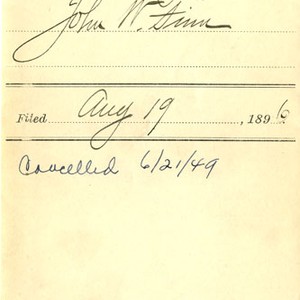 John W. Finn
Filed Aug 19, 1896
Cancelled 6/21/49